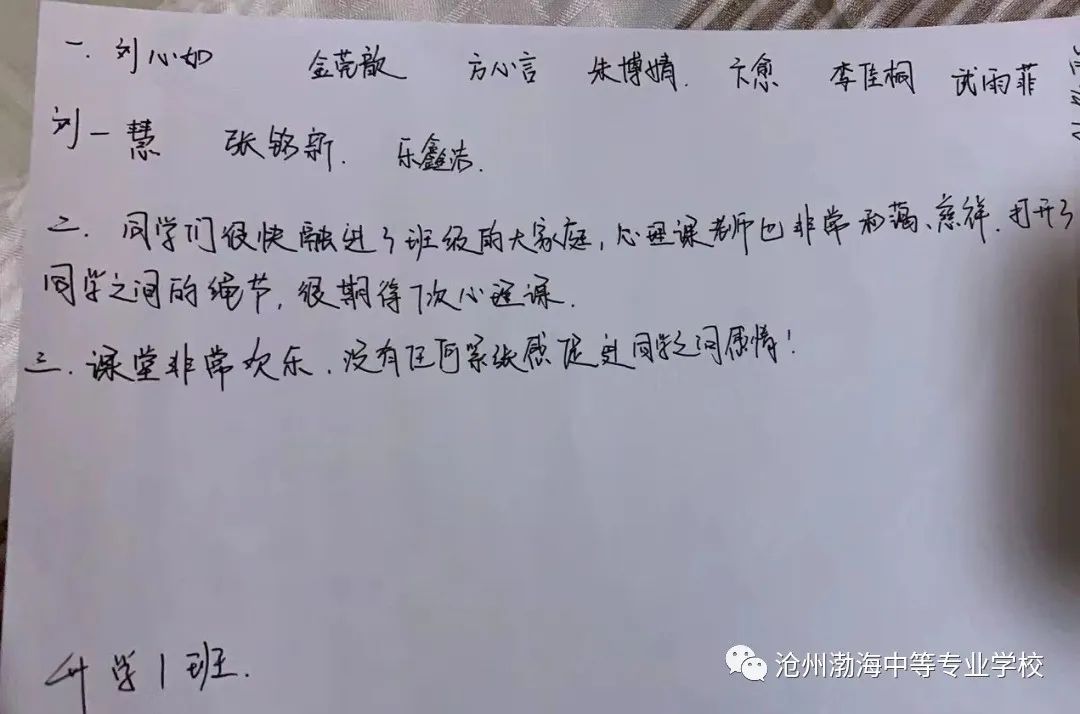 一. 刘心如 金莞歆 方心言 朱博婧. 卞愈 李佳桐 武雨菲
刘一慧 张铭新. 乐鑫洁.
二. 同学们很快融进了班级的大家庭, 心理课老师也非常和蔼、慈祥. 打开了
同学之间的绳节, 很期待下次心理课.
三. 课堂非常欢乐. 没有任何紧张感 促进同学之间感情!
升学1班.
沧州渤海中等专业学校